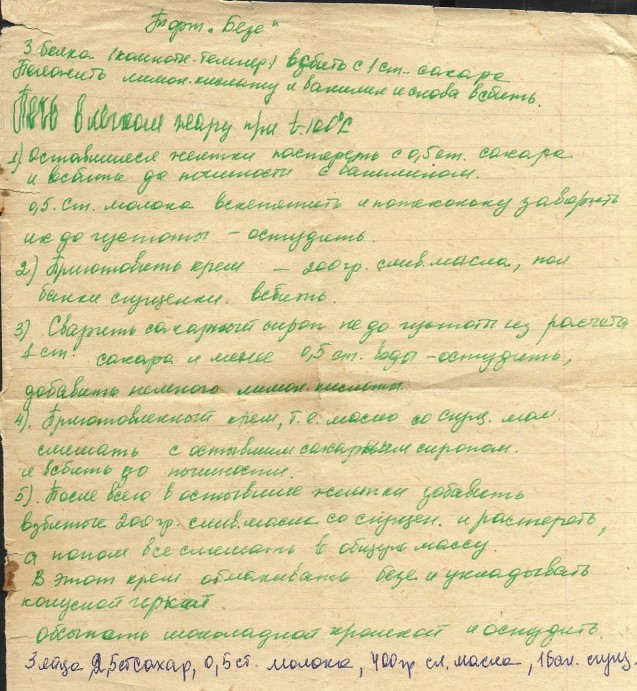 Торт „Безе"
3 белка (комнатн. темпер) взбить с 1 ст. сахара
Положить лимон. кислоту и ванилин и снова взбить.
Печь в легком жару при t-100°С
1) оставшиеся желтки растереть с 0,5 ст. сахара
и взбить до пышности с ванилином.
0,5. ст. молока вскипятить и потихоньку заварить
их до густоты – остудить.
2) Приготовить крем – 200гр. слив. масла, пол
банки сгущенки. взбить.
3) Сварить сахарный сироп не до густоты из расчета
1 ст. сахара и менее 0,5 ст. воды – остудить,
добавить немного лимон. кислоты
4). Приготовленный крем, т.е. масло со сгущ. мол.
смешать с остывшим сахарным сиропом.
и взбить до пышности.
5). После всего в остывшие желтки добавить
взбитые 200гр. слив. масла со сгущен. и растереть,
а потом все смешать в общую массу.
В этот крем обмакивать безе и укладывать
конусной горкой
обсыпать шоколадной крошкой и остудить.
3 яйца 2,5 ст сахар, 0,5 ст. молока, 400гр сл. масла, 1 бан. сгущ.